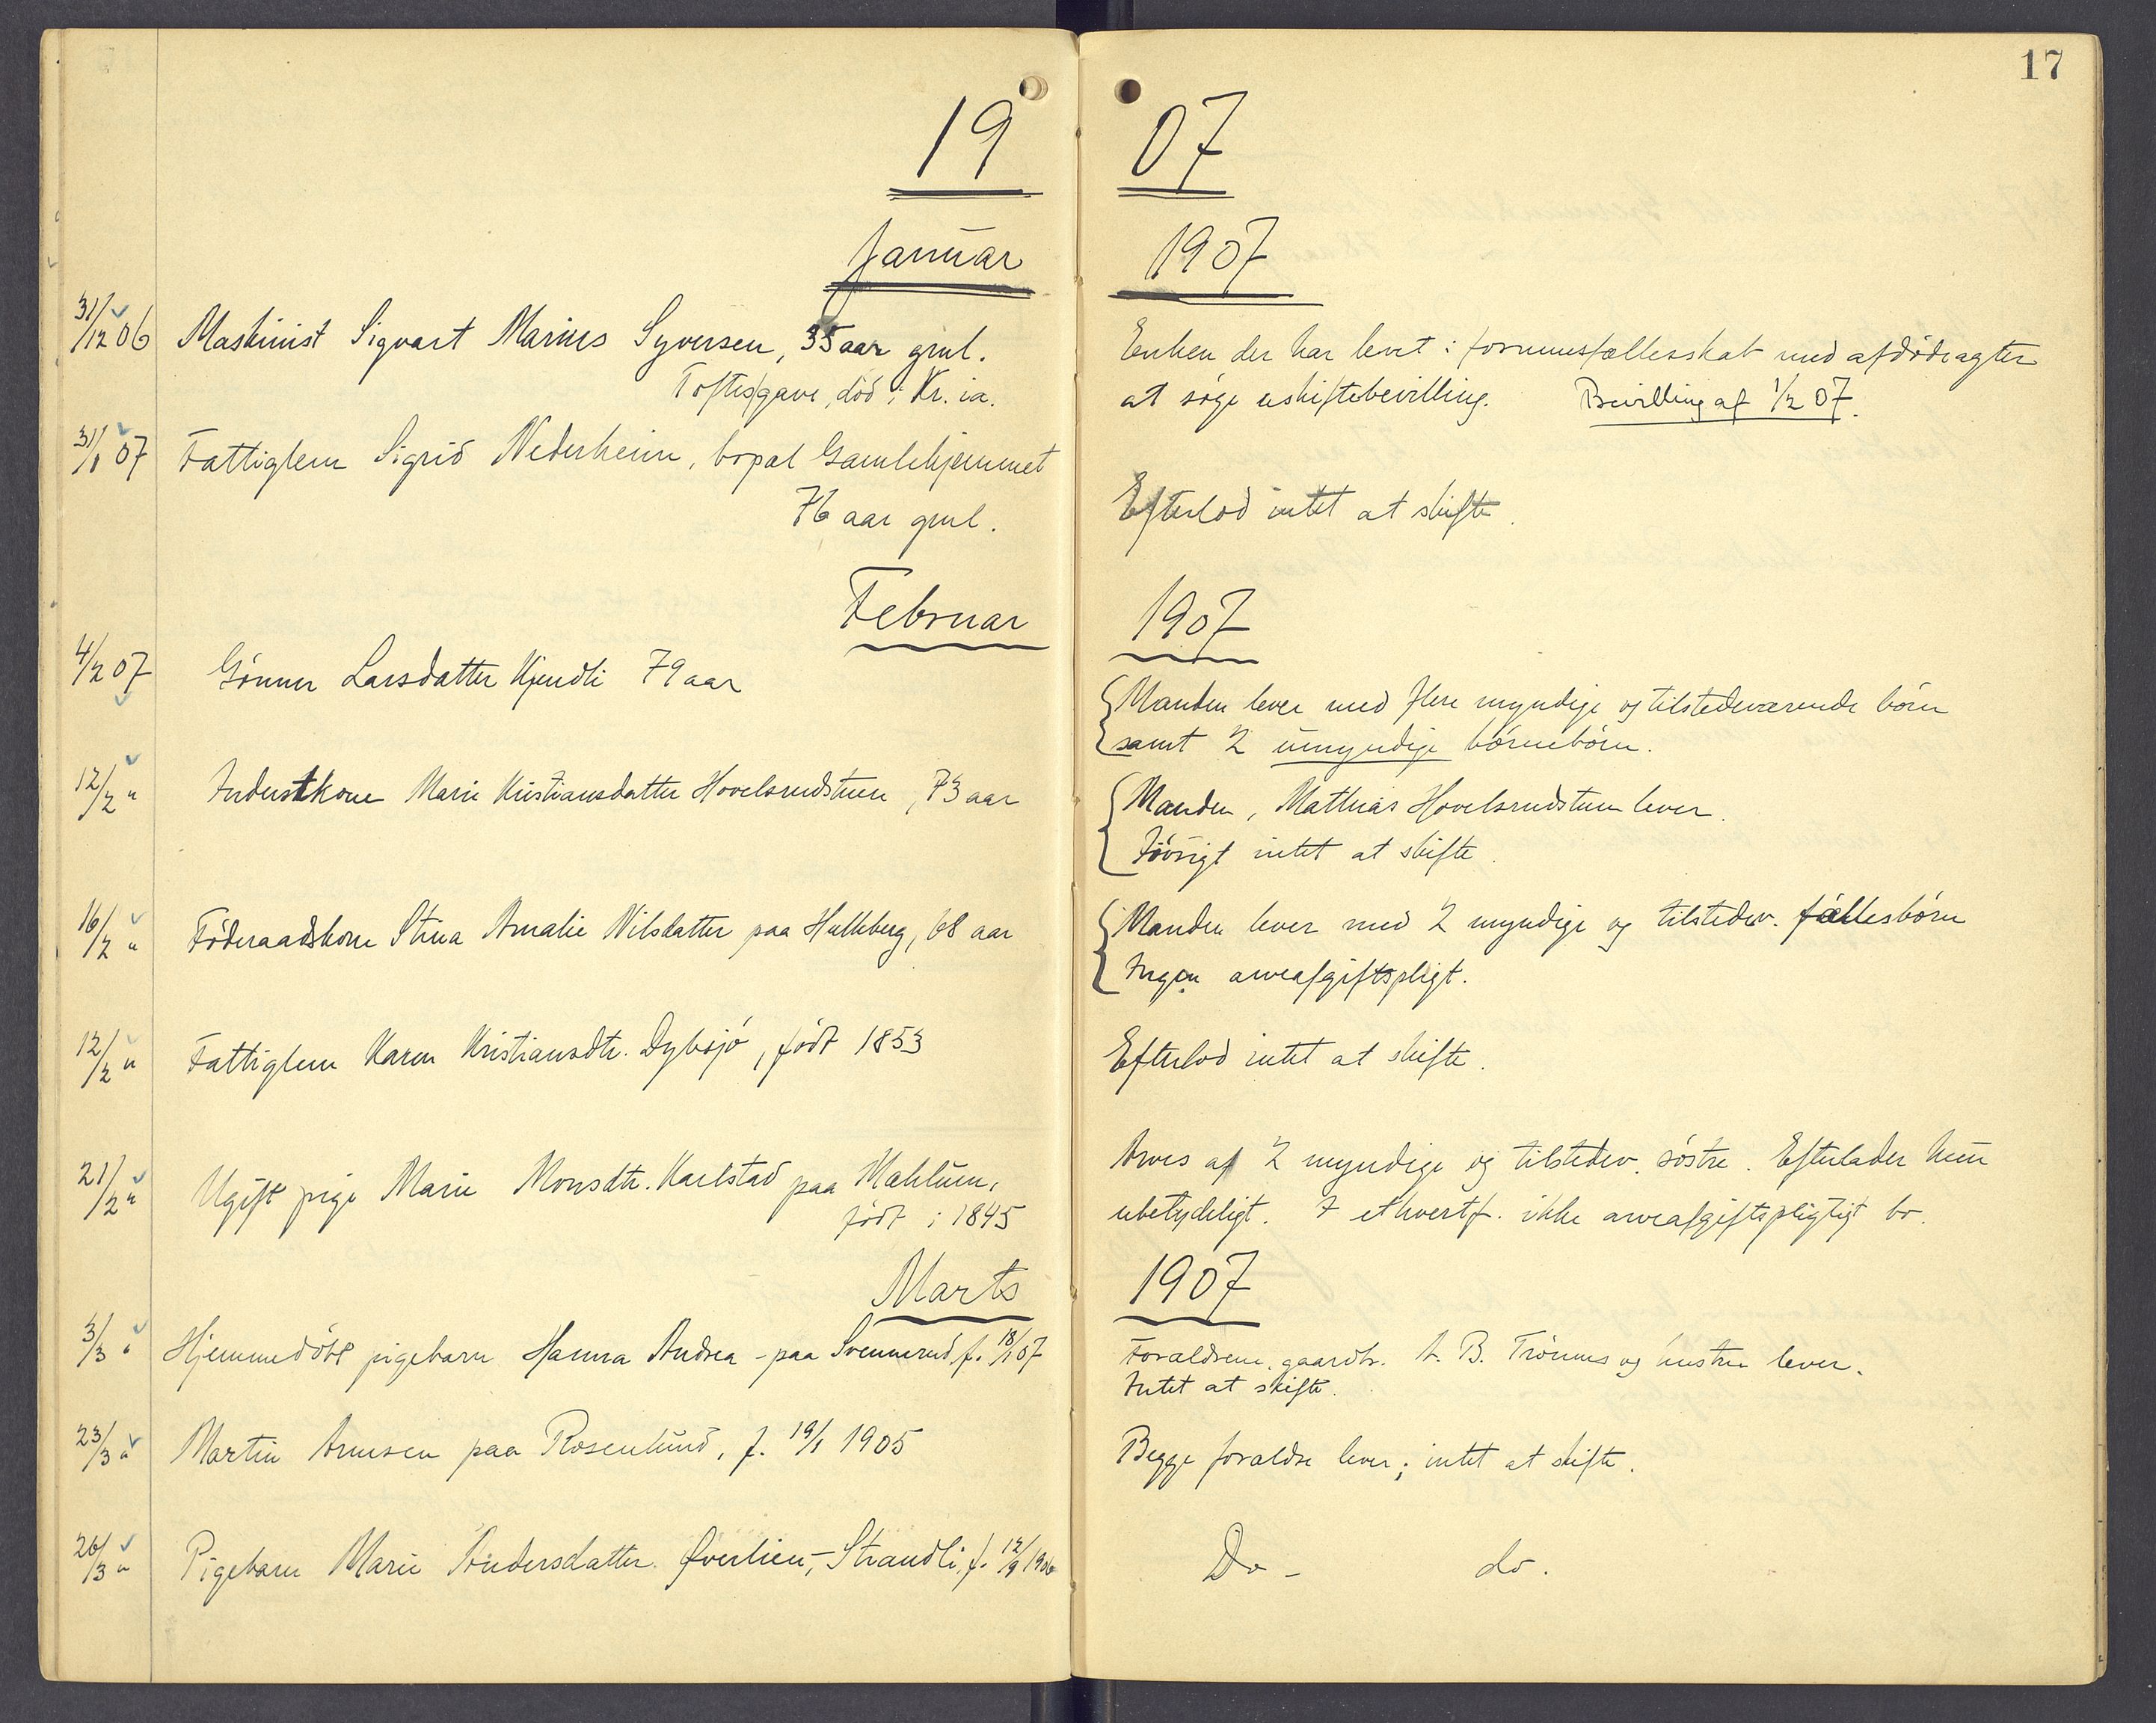 17
19 07
Januar 1907
31/12 06 Maskinist Sigvart Marius Syversen, 35 aar gml.
Toftesgave, död i Kr.ia.
Enken der har levet i formuesfællesskab med afdöde agter
at söge uskiftebevilling. Bevilling af 1/2 07.
31/1 07 Fattiglem Sigrid Nederheim, bopæl Gamlehjemmet
76 aar gml.
Efterlod intet at skifte.
Februar 1907
4/2 07 Gönner Larsdatter Kjendli 79 aar
Manden lever med flere myndige og tilstedeværende börn
samt 2 umyndige börnebörn.
12/2 " Inderstkone Marie Kristiansdatter Hovelsrudstuen, 73 aar
Manden, Mathias Hovelsrudstuen lever.
Iövrigt intet at skifte.
16/2 " Föderaadskone Stina Amalie Nilsdatter paa Hulleberg, 68 aar
Manden lever med 2 myndige og tilstedev. fællesbörn
Ingen arveafgiftspligt.
12/2 " Fattiglem Karen Kristiansdtr. Dybsjö, födt 1853
Efterlod intet at skifte.
21/2 " Ugift pige Marie Monsdtr. Karlstad paa Mæhlum,
födt i 1845
Arves af 2 myndige og tilstedev. söstre. Efterlader kun
ubetydeligt. I ethvertf. ikke arveafgiftspligtigt bo.
Marts 1907
3/3 " Hjemmedöbt pigebarn Hanna Andrea - paa Svennerud f. 18/1 07
Forældrene, gaardbr. A. B. Trönnes og hustru lever.
Intet at skifte.
23/3 " Martin Arnesen paa Rosenlund, f. 19/1 1905
Begge forældre lever; intet at skifte.
26/3 " Pigebarn Marie Andersdatter Øverlien, - Strandli, f. 12/9 1906
Do - do.